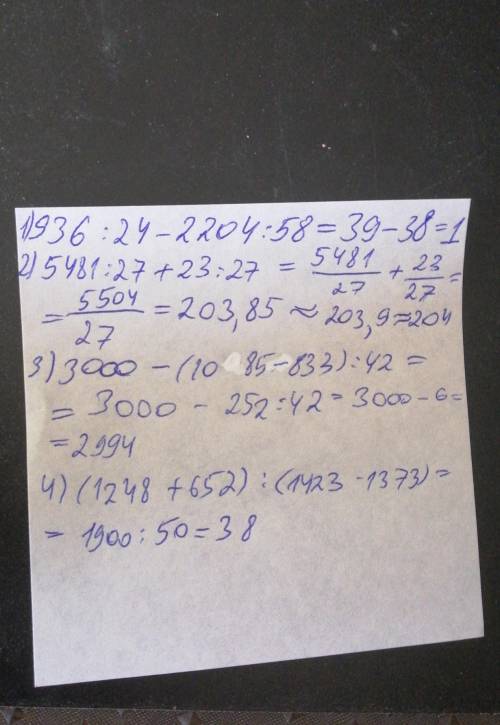 1) 936 : 24 - 2204 : 58 = 39 - 38 = 1
2) 5481 : 27 + 23 : 27 = 5481/27 + 23/27 =
= 5504/27 = 203,85 ≈ 203,9 ≈ 204
3) 3000 - (10 85 - 833) : 42 =
= 3000 - 252 : 42 = 3000 - 6 =
= 2994
4) (1248 + 652) : (1423 - 1373) =
= 1900 : 50 = 38